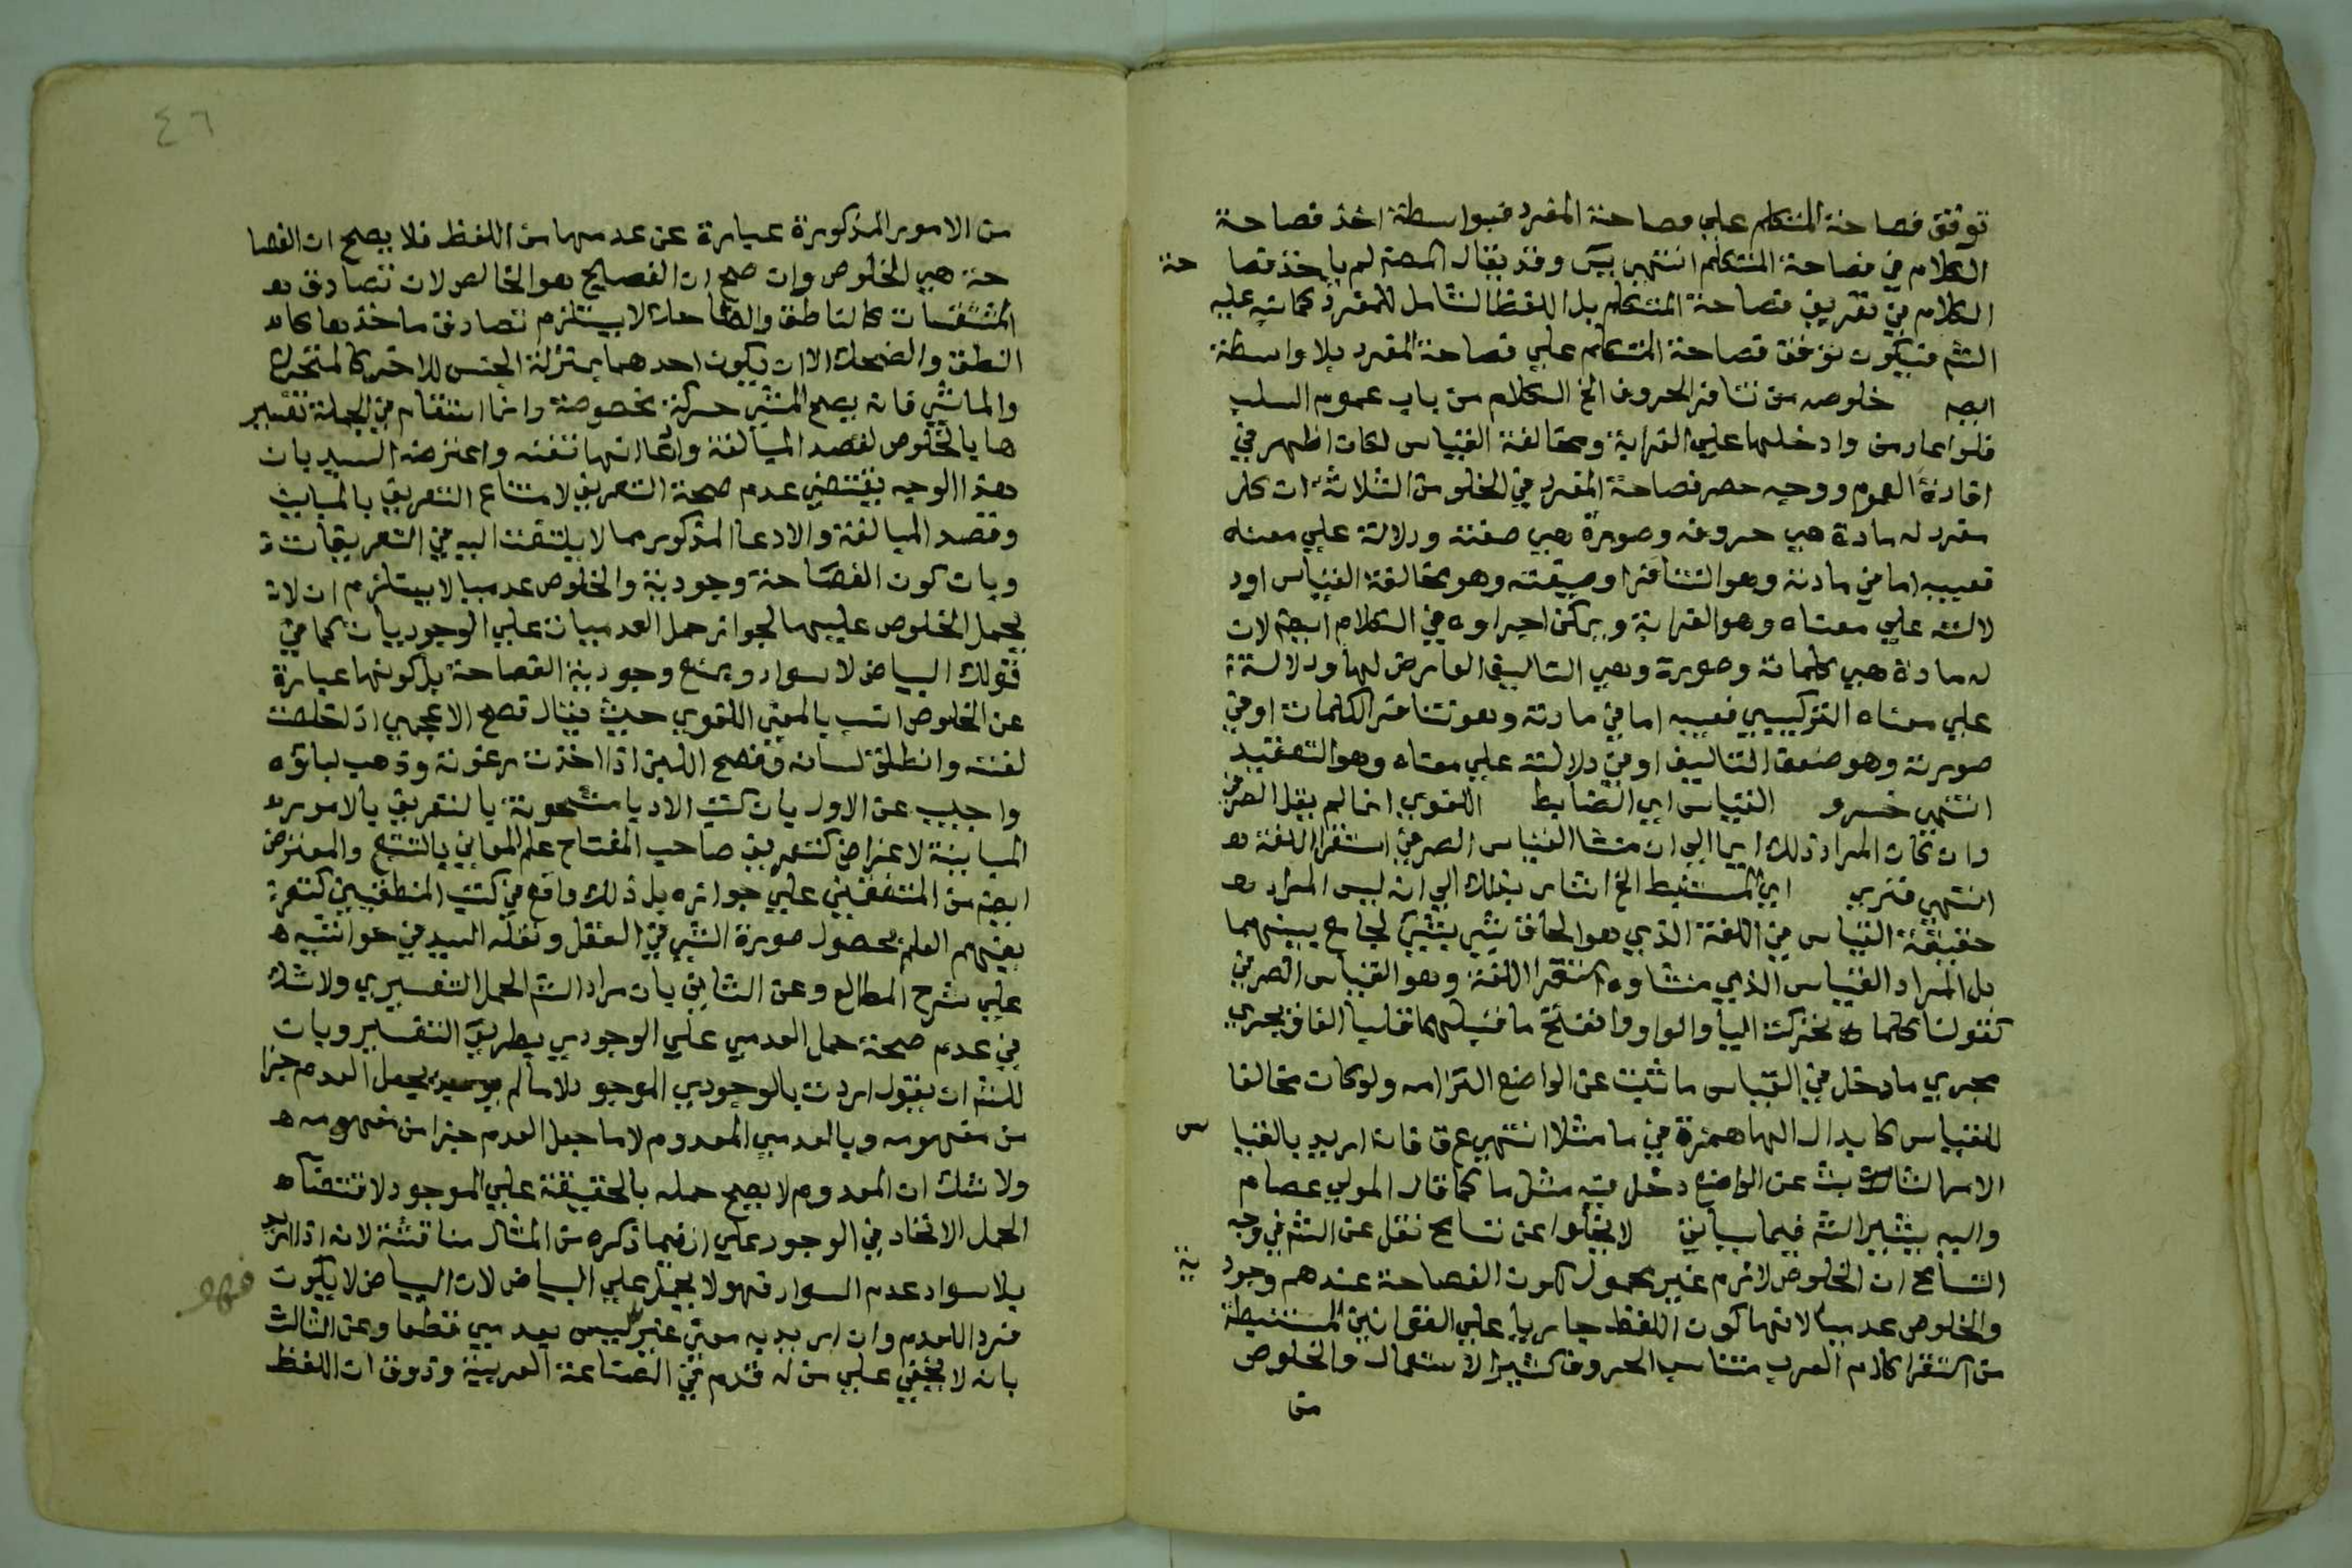 توقف فصاحة المتكلم علي فصاحة المفرد فبواسطة اخذ فصاحة
الكلام في فصاحة المتكلم انتهي يس وقد يقال المصه لم ياخذ فصا حة
الكلام في تعريف فصاحة المتكلم بل اللفظ الشامل للمفرد كما نبه عليه
الشم فيكون توقف فصاحة المتكلم علي فصاحة المفرد بلا واسطة
ايضه خلوصه من تنافر الحروف الخ الكلام من باب عموم السلب
فلو اعاد من وادخلها علي الغرابة ومخالفة القياس لكان اظهر في
افادة العموم ووجه حصر فصاحة المفرد في الخلوص الثلاثة ان كل
مفرد له مادة هي حروفه وصورة هي صفته ودلالة علي معناه
فعيبه اما في مادته وهو التنافر او صيغته وهو مخالفة القياس او د
لالته علي معناه وهو الغرابة ويمكن اجراوه في الكلام ايضه لان
له مادة هي كلماته وصورة وهي التاليف العارض لها ودلالة
علي معناه التركيبي فعيبه اما في مادته وهو تنافر الكلمات او في
صورته وهو ضعف التاليف او في دلالته علي معناه وهو التعقيد
انتهي خسرو القياس اي الضابط اللغوي انما لم يقل الصرفي
وان كان المراد ذلك ايما الي ان منشا القياس الصرفي استقرا اللغة
انتهي فنري اي المستنبط الخ اشار بذلك الي انه ليس المراد
حقيقة القياس في اللغة الذي هو الحاق شي بشي لجامع بينهما
بل المراد القياس الذي منشاوه استقرا اللغة وهو القياس الصرفي
كقولنا كلما تحركت اليا والواو وانفتح ما قبلهما قلبا الفا فيجري
مجري ما دخل في القياس ما ثبت عن الواضع التزامه ولو كان مخالفا
للقياس كابدال الها همزة في ما مثلا انتهي ع ق فانه اريد بالقيا س
الامر الثابت عن الواضع دخل فيه مثل ما كما قال المولي عصام
واليه يشير الشه فيما سياتي لا يخلوا عن تسامح نقل عن الشم في وجه
التسامح ان الخلوص لازم غير محمول لكون الفصاحة عندهم وجود ية
والخلوص عدميا لانها كون اللفظ جاريا علي القوانين المستنبطة
من استقرا كلام العرب متناسب الحروف كثير الاستعمال والخلوص
من
٤٦
من الامور المذكورة عبارة عن عدمها من اللفظ فلا يصح ان الفصا
حة هي الخلوص وان صح ان الفصيح هو الخالص لان تصادق
المشتقات كالناطق والضاحك لا يستلزم تصادق ماخذها كا
النطق والضحك الا ان يكون احدهما بمنزلة الجنس للاخر كالمتحرك
والماشي فانه يصح المشي حركة مخصوصة وانما استقام في الجملة تفسير
ها بالخلوص لقصد المبالغة وادعا انها نفسه واعترضه السيد بان
هذا الوجه يقتضي عدم صحة التعريف لامتناع التعريف بالمباين
وقصد المبالغة والادعا المذكور مما لا يلتفت اليه في التعريفات
وبان كون الفصاحة وجودية والخلوص عدميا لا يستلزم ان لا
يحمل الخلوص عليها لجواز حمل العدميات علي الوجوديات كما في
قولك البياض لا سواد ويمنع وجودية الفصاحة بل كونها عبارة
عن الخلوص انسب بالمعني اللغوي حيث يقال فصح الاعجمي اذا خلصت
لغته وانطلق لسانه وفصح اللبن اذا اخذت رغوته وذهب لباؤه
واجيب عن الاول بان كتب الادبا مشحونة بالتعريف بالامور
المباينة لاغراض كتعريف صاحب المفتاح علم المعاني بالتتبع والمعترض
ايضه من المتفقين علي جوازه بل ذلك واقع في كتب المنطقيين كتعر
يفهم العلم بحصول صورة الشي في العقل ونقله السيد في حواشيه
علي شرح المطالع وعن الثاني بان مراد الشم الحمل التفسيري ولا شك
في عدم صحة حمل العدمي علي الوجودي بطريق التفسير وبان
للشم ان يقول اردت بالوجودي الموجود لا ما لم يجعل العدم جزا
من مفهومه وبالعدمي المعدوم لا ما جعل العدم جزا من مفهومه
ولا شك ان المعدوم لا يصح حمله بالحقيقة علي الموجود لاقتضاء
الحمل الاتحاد في الوجود علي ان فيما ذكره من المثال مناقشة لانه اذا اريد
بلا سواد عدم السواد فهو لا يحمل علي البياض لان البياض لا يكون
فهو
فرد اللعدم وان اريد به معني غير ليس بعدمي قطعا وعن الثالث
بانه لا يخفي علي من له قدم في الصناعة العربية وذوق ان اللفظ